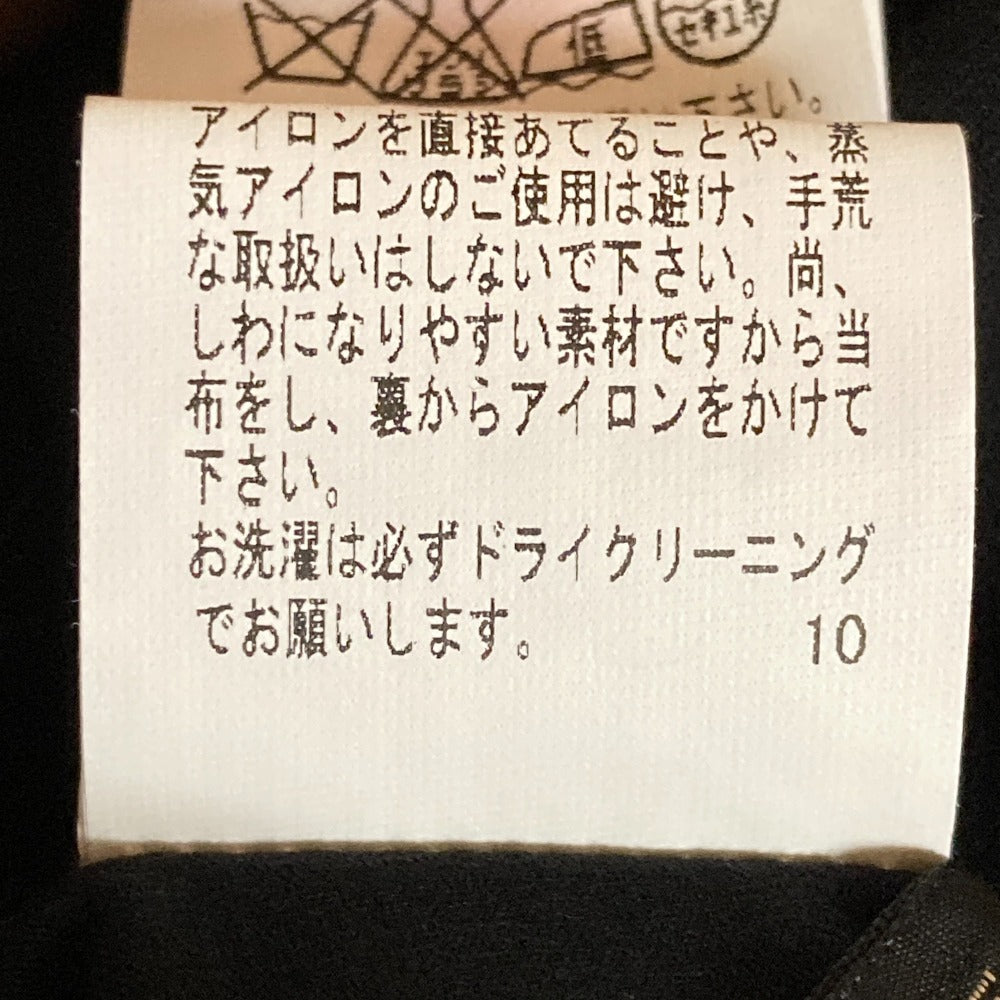 低
セキユ系
下さい。
アイロンを直接あてることや、蒸
気アイロンのご使用は避け、手荒
な取扱いはしないで下さい。尚、
しわになりやすい素材ですから当
布をし、裏からアイロンをかけて
下さい。
お洗濯は必ずドライクリーニング
でお願いします。 10